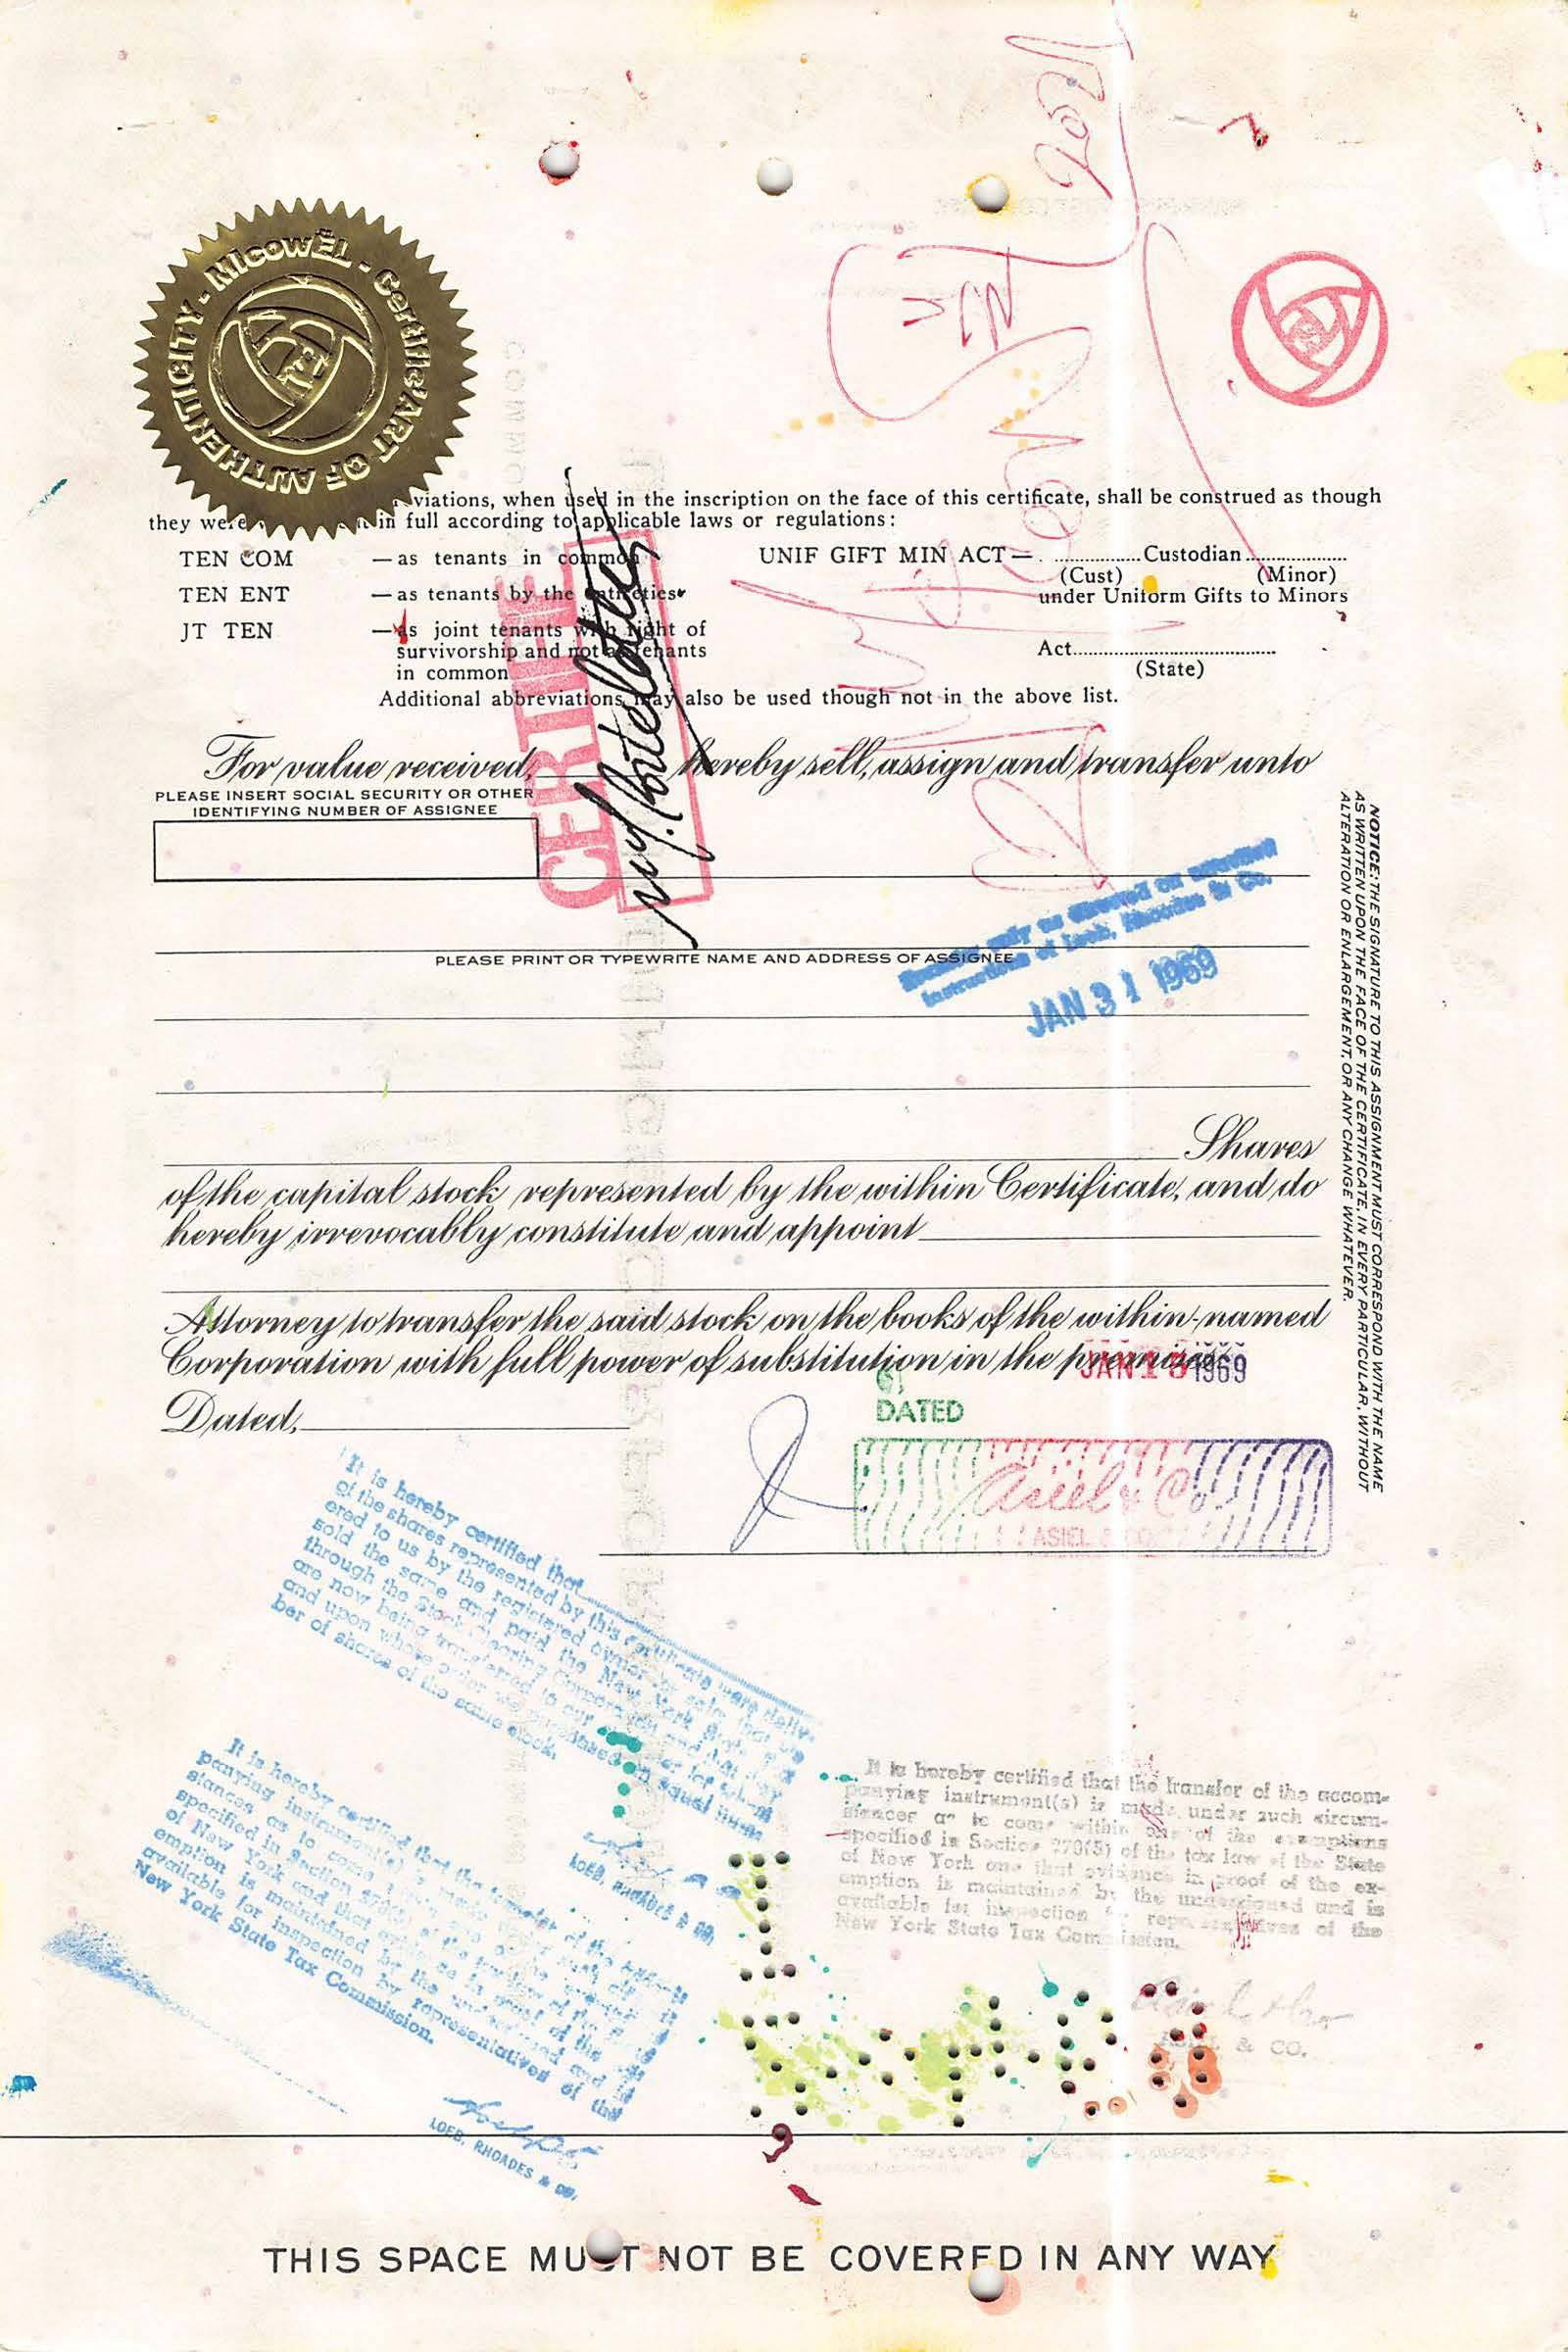 NICOWËL - Certific'ART OF AUTHENTICITY -
viations, when used in the inscription on the face of this certificate, shall be construed as though
they were in full according to applicable laws or regulations:
TEN COM — as tenants in common UNIF GIFT MIN ACT — Custodian
(Cust) (Minor)
TEN ENT — as tenants by the entireties under Uniform Gifts to Minors
JT TEN — as joint tenants with right of
survivorship and not as tenants Act
in common (State)
Additional abbreviations may also be used though not in the above list.
CERTIFIE
For value received, hereby sell, assign and transfer unto
PLEASE INSERT SOCIAL SECURITY OR OTHER
IDENTIFYING NUMBER OF ASSIGNEE
only as directed on
instructions of Loeb, Rhoades & Co.
PLEASE PRINT OR TYPEWRITE NAME AND ADDRESS OF ASSIGNEE
JAN 31 1969
Shares
of the capital stock represented by the within Certificate, and do
hereby irrevocably constitute and appoint
Attorney to transfer the said stock on the books of the within-named
Corporation with full power of substitution in the premises.
JAN 15 1969
DATED
Dated,
Asiel & Co.
ASIEL & CO.
NOTICE: THE SIGNATURE TO THIS ASSIGNMENT MUST CORRESPOND WITH THE NAME
AS WRITTEN UPON THE FACE OF THE CERTIFICATE, IN EVERY PARTICULAR, WITHOUT
ALTERATION OR ENLARGEMENT, OR ANY CHANGE WHATEVER.
It is hereby certified that
of the shares represented by this certificate were deliv-
ered to us by the registered owner for sale, that we
sold the same and paid the New York State tax
through the Stock Clearing Corporation and that they
are now being transferred to our for whom
and upon whose order we purchased an equal num-
ber of shares of the same stock.
LOEB, RHOADES & CO.
It is hereby certified that the transfer of the accom-
panying instrument(s) is made under such circum-
stances as to come within one of the exemptions
specified in Section 270(5) of the tax law of the State
of New York and that evidence in proof of the ex-
emption is maintained by the undersigned and is
available for inspection by representatives of the
New York State Tax Commission.
LOEB, RHOADES & CO.
It is hereby certified that the transfer of the accom-
panying instrument(s) is made under such circum-
stances as to come within one of the exemptions
specified in Section 270(5) of the tax law of the State
of New York and that evidence in proof of the ex-
emption is maintained by the undersigned and is
available for inspection by representatives of the
New York State Tax Commission.
& CO.
THIS SPACE MUST NOT BE COVERED IN ANY WAY